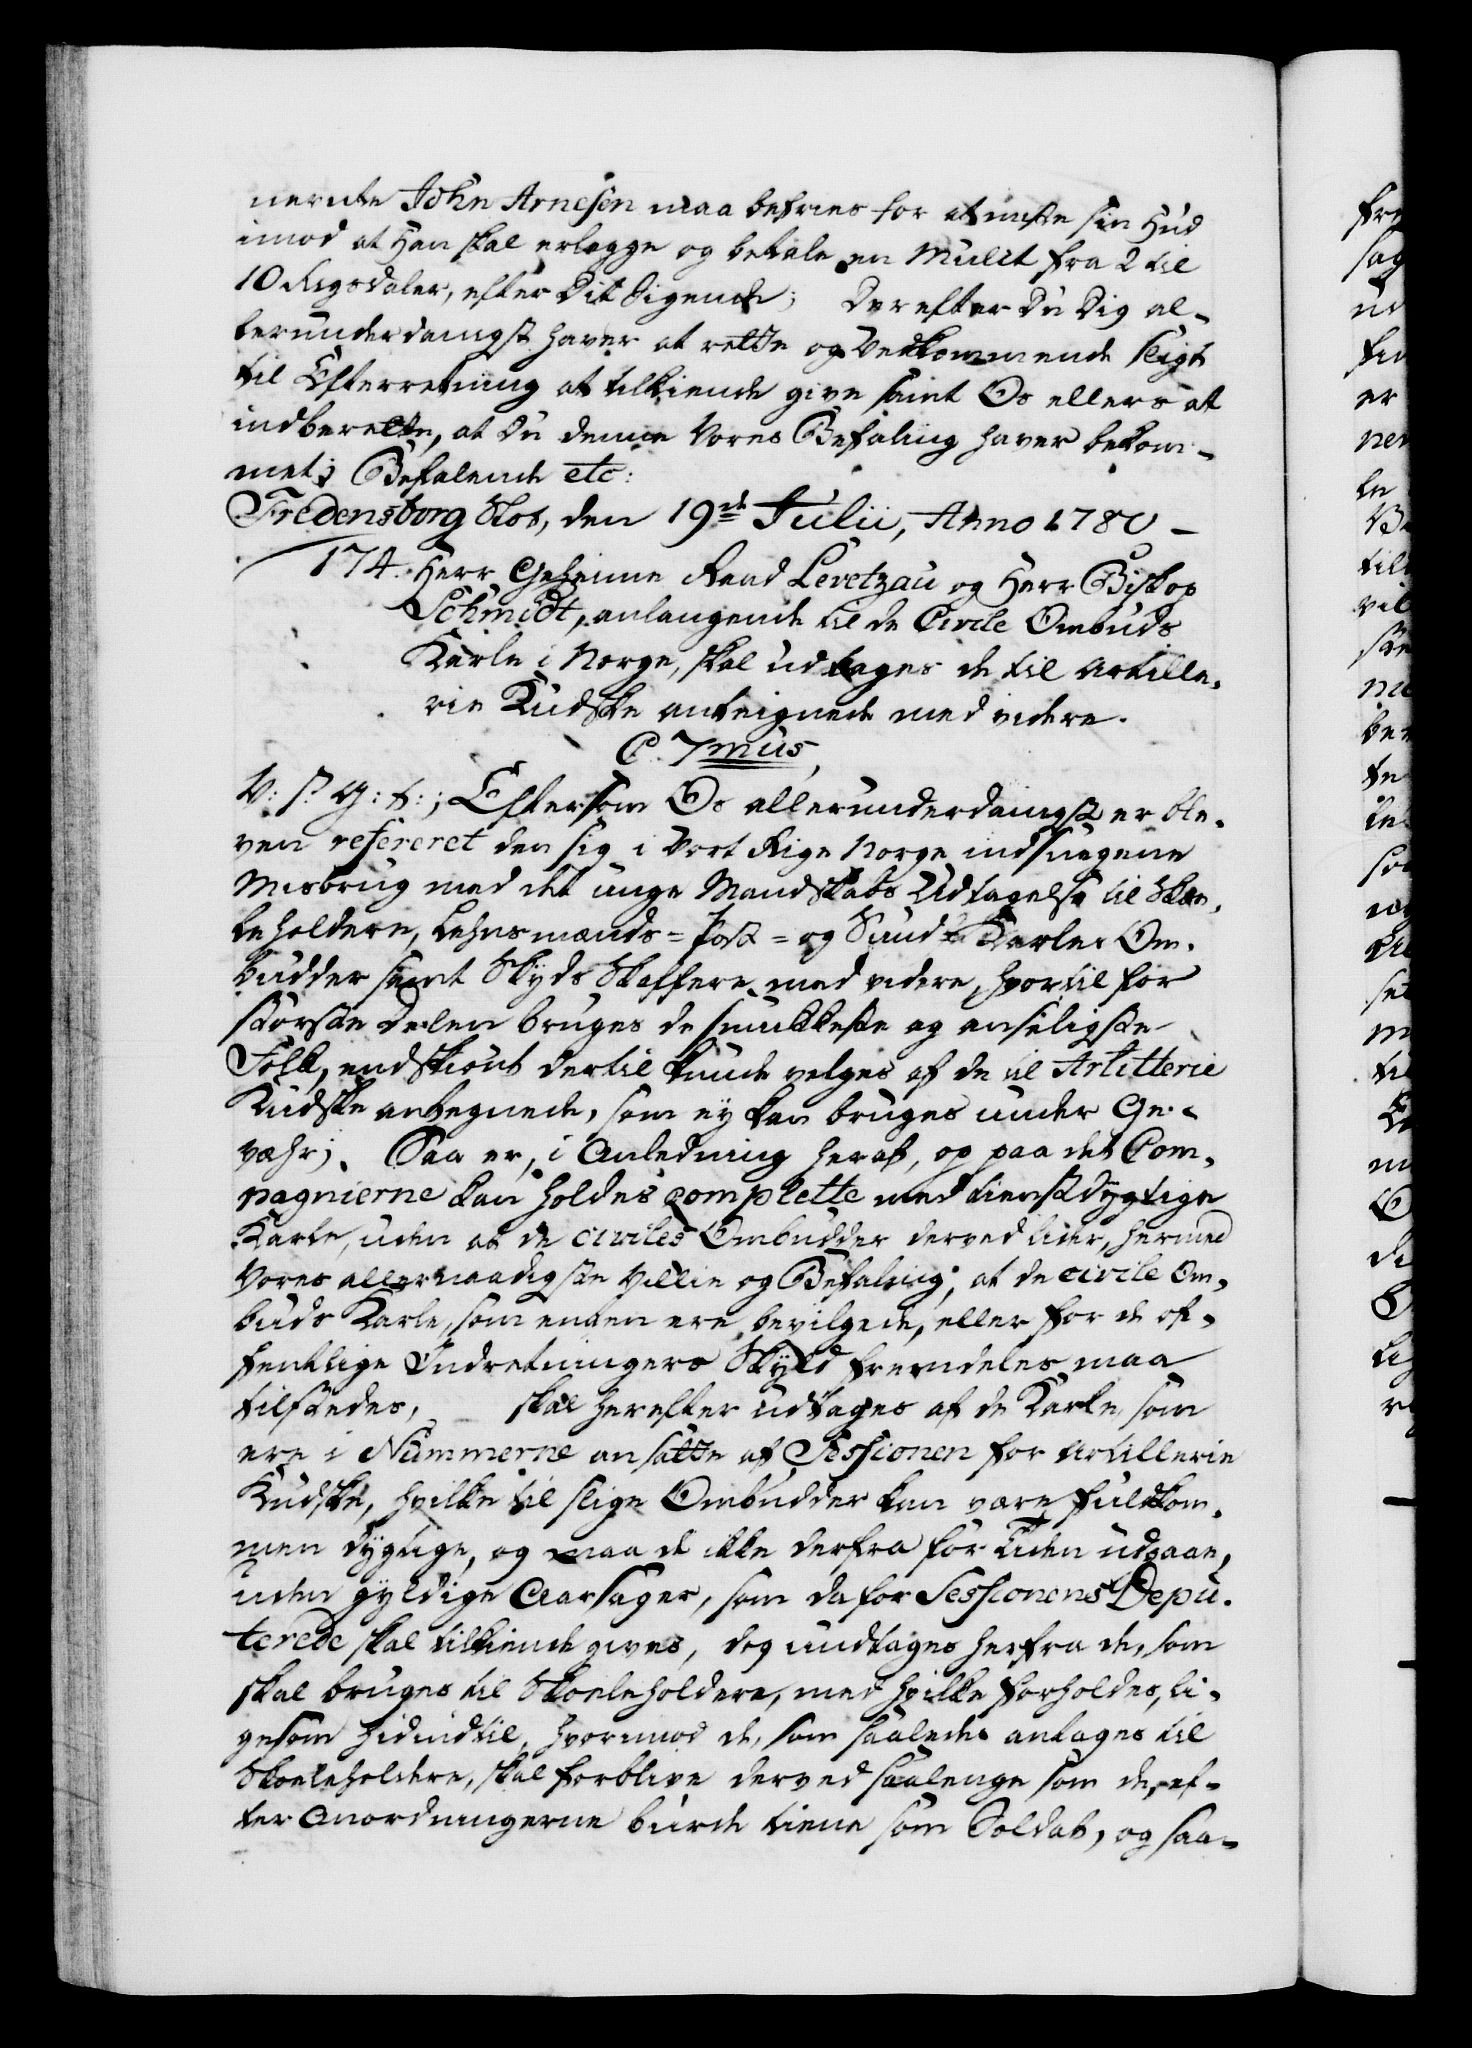 nernde John Arnesen maa befries for at miste sin Hud
imod at Han skal erlegge og betale en Mulct fra 2 til
10 Rigsdaler, efter Dit Sigende; Derefter Du Dig al-
lerunderdanigst haver at rette og Vedkommende sligt
til Efterretning at tilkiende give samt Os ellers at
indberette, at Du denne Vores Befaling haver bekom-
met; Befalende etc:
Fredensborg Slot, den 19de Julii, Anno 1780 -
174. Herr Geheime Raad Levetzau og Herr Biskop
Schmidt, anlangende til de Civile Ombuds
Karle i Norge, skal udtages de til Artille-
rie Kudske anteignede med videre.
C. 7mus,
V: S: G: t:; Eftersom Os allerunderdanigst er ble-
ven refereret den sig i Vort Rige Norge indsnegene
Misbrug med det unge Mandskabs Udtagelse til Skoe-
leholdere, Lehnsmænds= Post= og Sund= Karles Om-
budder samt Skyds Skaffere med videre, hvortil for
største Delen bruges de smukkeste og anseligste
Folk, endskiønt dertil kunde velges af de til Artillerie
Kudske antegnede, som ey kan bruges under Ge-
væhr; Saa er, i Anledning heraf, og paa det Com-
pagnierne kan holdes complette med tienstdygtige
Karle, uden at de civiles Ombudder derved lider, hermed
Vores allernaadigste Villie og Befaling, at de civile Om-
buds Karle, som enten ere bevilgede, eller for de of-
fentlige Indretningers Skyld fremdeles maa
tilstedes, skal herefter udtages af de Karle, som
ere i Nummerne ansatte af Sessionen for Artillerie
Kudske, hvilke til slige Ombudder kan være fuldkom-
men dygtige, og maa de ikke derfra før Tiden udgaae,
uden gyldige Aarsager, som da for Sessionens Depu-
terede skal tilkiende gives, dog undtages herfra de, som
skal bruges til Skoeleholdere, med hvilke forholdes, li-
gesom hidindtil, hvorimod de, som saaledes antages til
Skoeleholdere, skal forblive derved saalenge som de, ef-
ter Anordningerne burde tiene som Soldat, og saa-